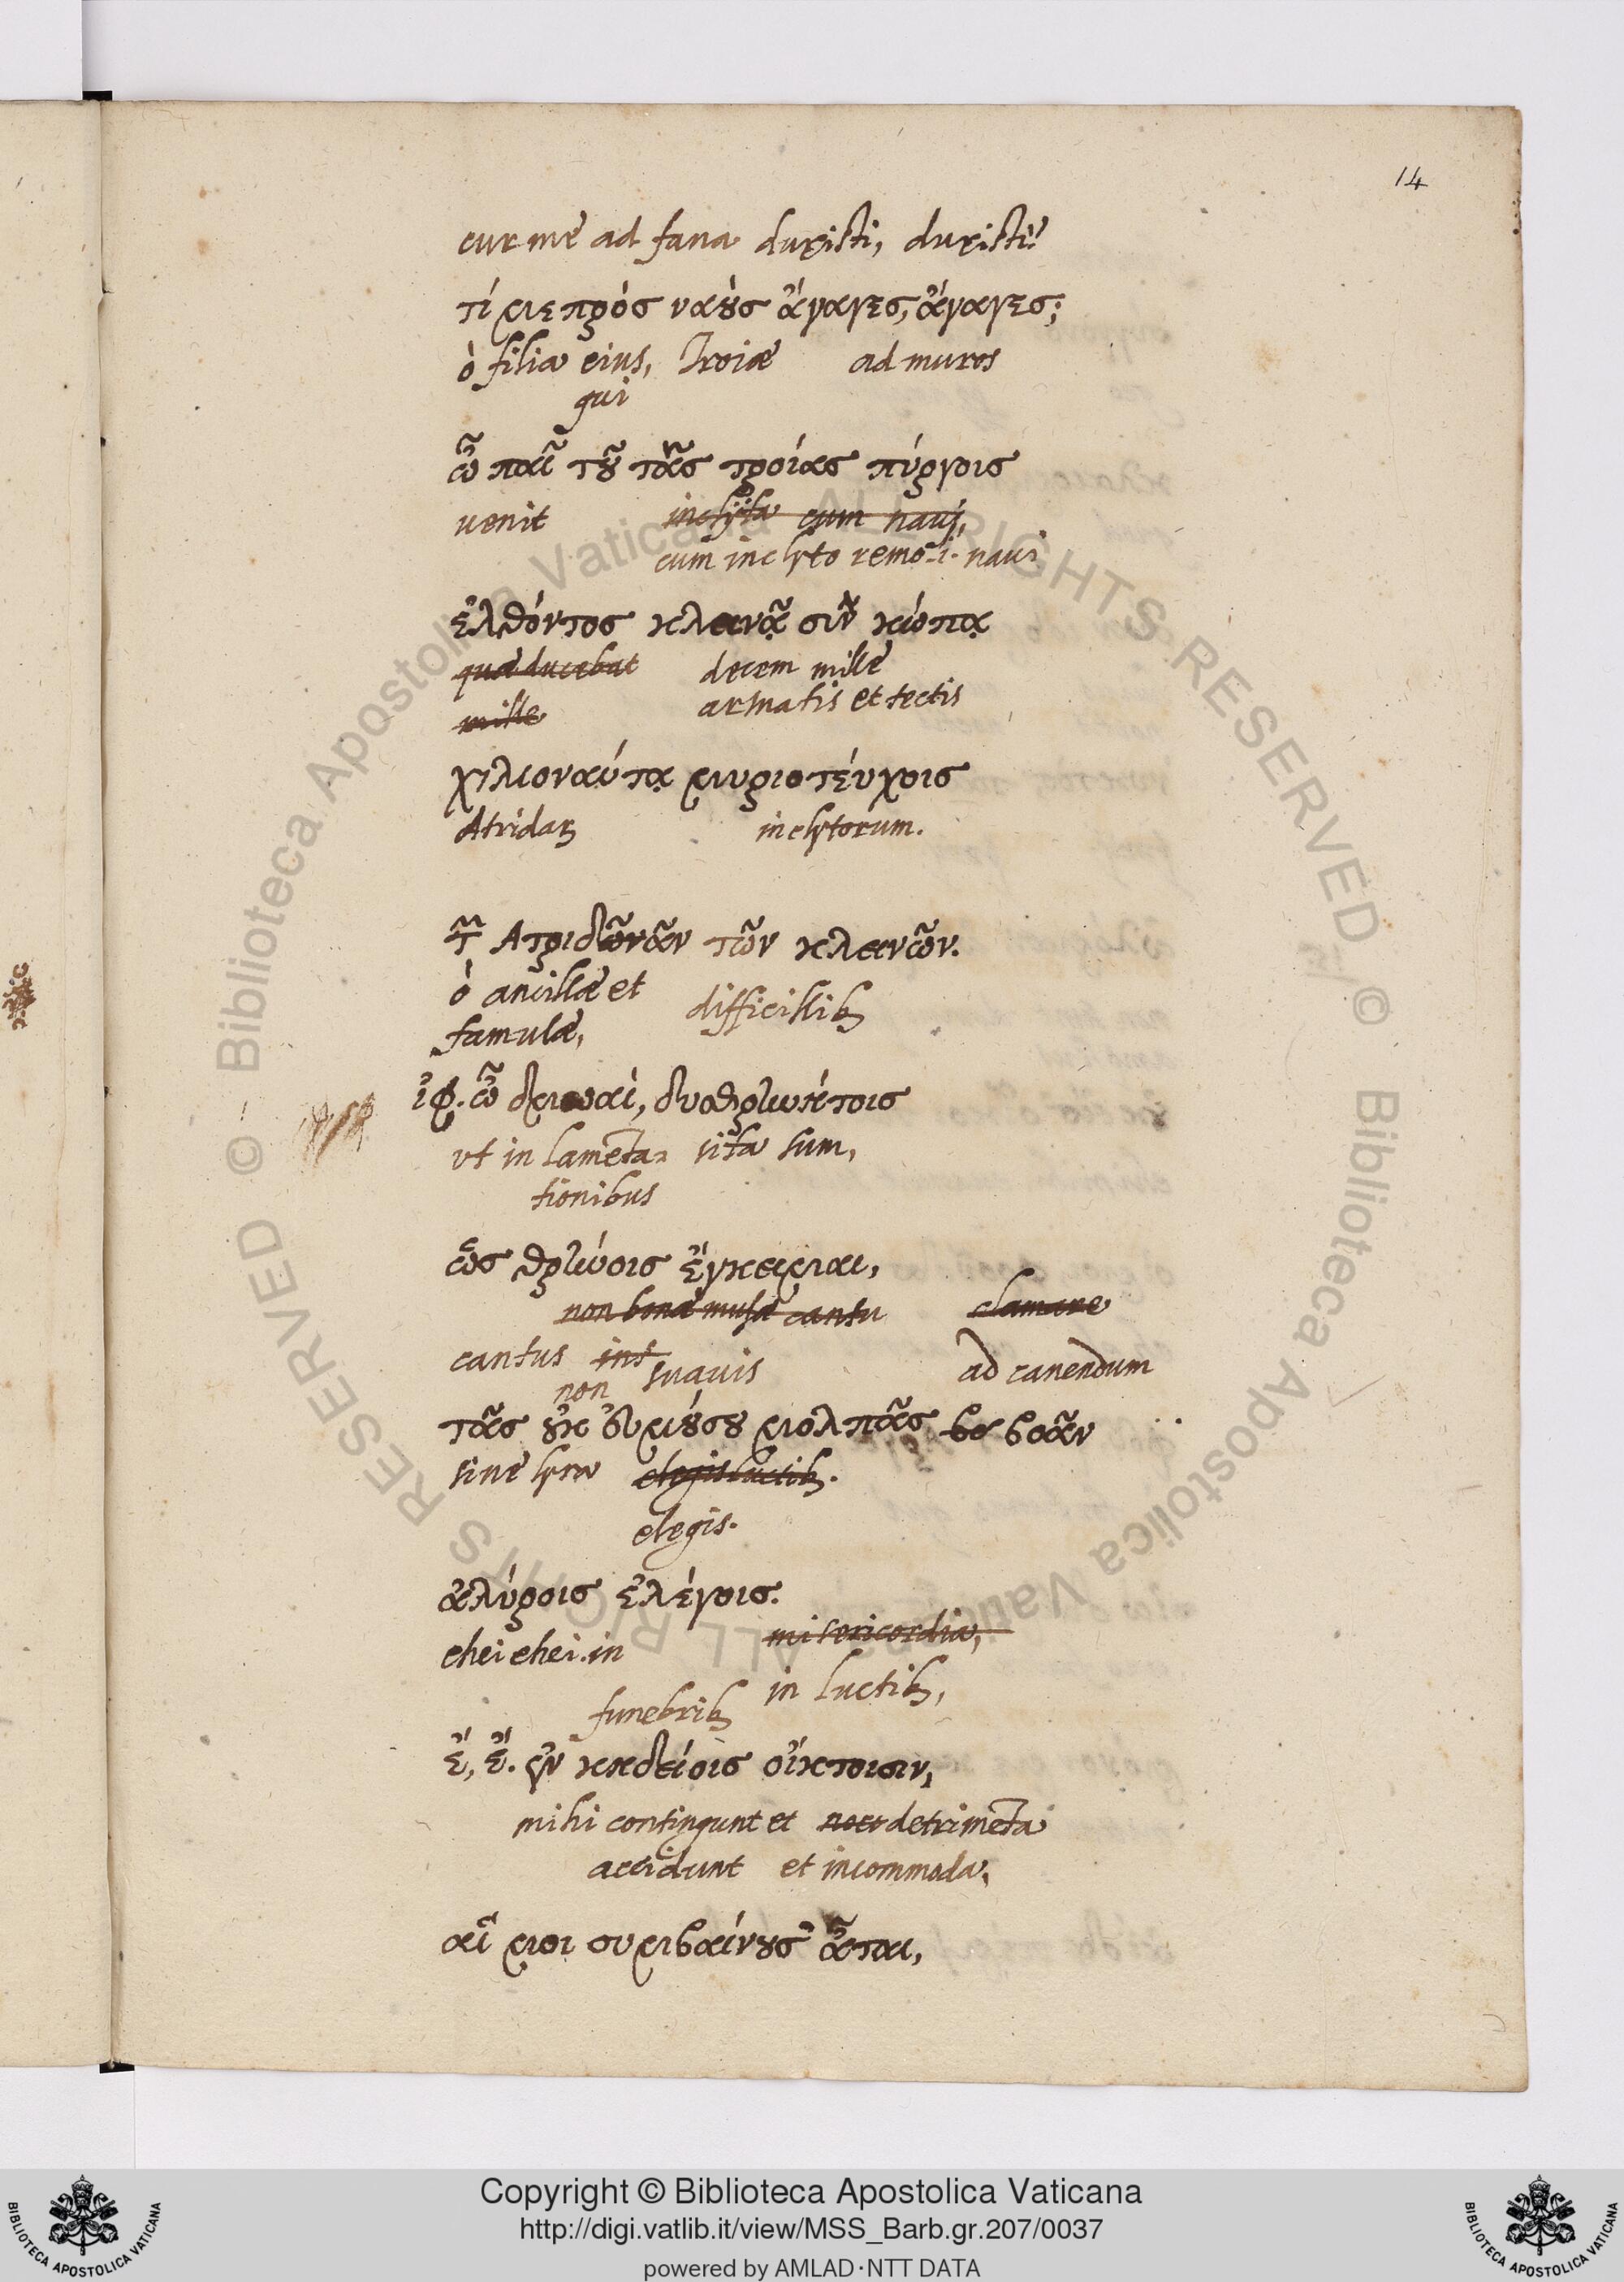 14
cur me ad fana duxisti, duxisti?
τί με πρὸς ναοὺς ἄγαγες, ἄγαγες;
ὸ filia eius, Troiæ ad muros
qui
ὦ παῖ τοῦ τᾶς τροίας πύργοις
uenit inclyta cum naui,
cum inclyto remo .i. naui
ἐλθόντος κλεινᾷ σὺν κώπᾳ
quæ ducebat decem mille
mille armatis et tectis
χιλιοναύτᾳ μυριοτεύχοις
Atridaꝝ inclytorum.
τῶν Ατριδῶνᾶν τῶν κλεινῶν.
ὸ ancillæ et difficillibꝫ
famulæ,
ἰφ. ὦ δμωαὶ, δυσθρηνήτοις
vt in lamēta- sita sum,
tionibus
ὡς θρήνοις ἔγκειμαι,
non bonæ musæ cantu clamare
cantus int suauis ad canendum
non
τᾶς οὐκ εὐμούσου μολπᾶς βο βοᾶν
sine lyra elegis luctibꝫ.
elegis.
ἀλύροις ἐλέγοις.
ehei ehei. in misericordia,
in luctibꝫ,
funebribꝫ
ἒ, ἒ. ἐν κηδείοις οἴκτοισιν,
mihi contingunt et noce detrimēta
accidunt et incommoda,
αἵ μοι συμβαίνουσ' ἆται,
Copyright © Biblioteca Apostolica Vaticana
http://digi.vatlib.it/view/MSS_Barb.gr.207/0037
powered by AMLAD·NTT DATA
BIBLIOTECA APOSTOLICA VATICANA
BIBLIOTECA APOSTOLICA VATICANA
© Biblioteca Apostolica Vaticana ALL RIGHTS RESERVED
© Biblioteca Apostolica Vaticana ALL RIGHTS RESERVED